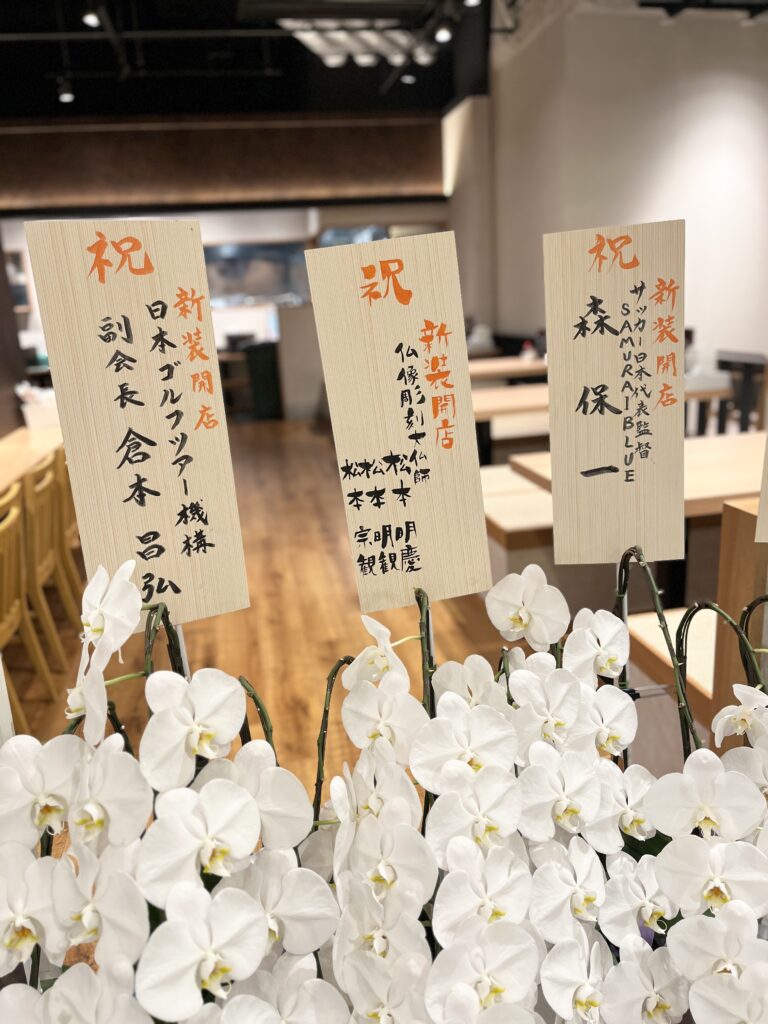 祝
新装開店
日本ゴルフツアー機構
副会長 倉本昌弘
祝
新装開店
仏像彫刻大仏師
松本 明慶
松本 明観
松本 宗観
祝
新装開店
サッカー日本代表監督
SAMURAI BLUE
森保一